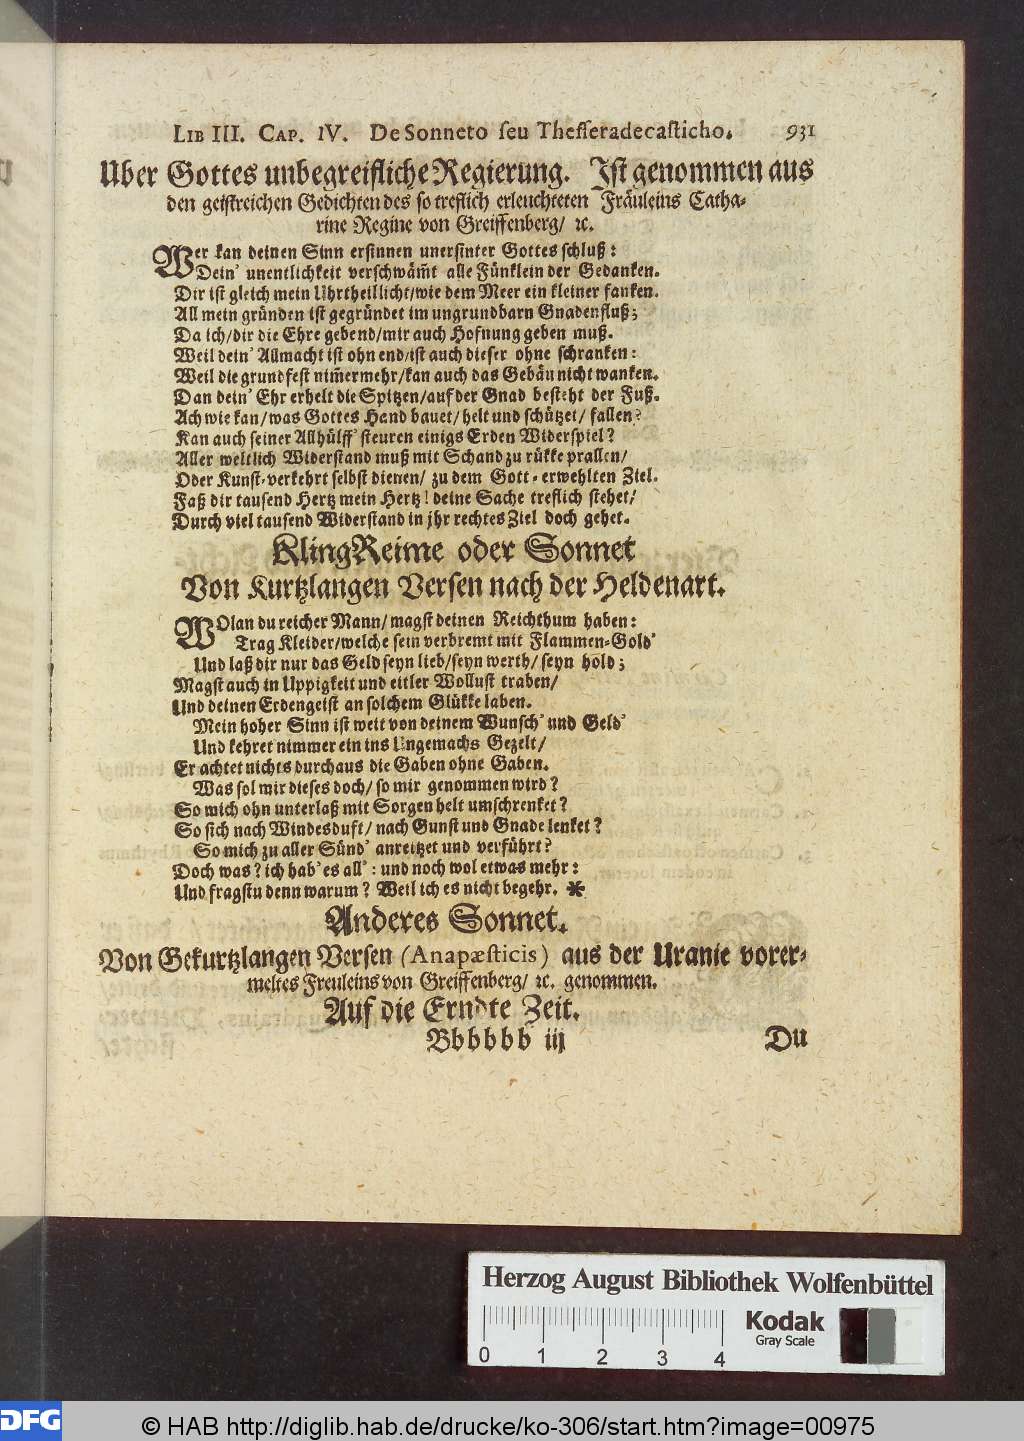 LIB III. CAP. IV. De Sonneto seu Thesseradecasticho. 931
Uber Gottes unbegreifliche Regierung. Ist genommen aus
den geistreichen Gedichten des so treflich erleuchteten Fräuleins Catha-
rine Regine von Greiffenberg/ ꝛc.
Wer kan deinen Sinn ersinnen unersinter Gottes schluß:
Dein' unentlichkeit verschwäm̃t alle Fünklein der Gedanken.
Dir ist gleich mein Uhrtheillicht/wie dem Meer ein kleiner fanken.
All mein gründen ist gegründet im ungrundbarn Gnadenfluß;
Da ich/dir die Ehre gebend/mir auch Hofnung geben muß.
Weil dein' Allmacht ist ohn end/ist auch dieser ohne schranken:
Weil die grundfest nim̃ermehr/kan auch das Gebäu nicht wanken.
Dan dein' Ehr erhelt die Spitzen/auf der Gnad besteht der Fuß.
Ach wie kan/was Gottes Hand bauet/helt und schützet/ fallen?
Kan auch seiner Allhülff' steuren einigs Erden Widerspiel?
Aller weltlich Widerstand muß mit Schand zu rükke prallen/
Oder Kunst-verkehrt selbst dienen/ zu dem Gott-erwehlten Ziel.
Faß dir tausend Hertz mein Hertz! deine Sache treflich stehet/
Durch viel tausend Widerstand in jhr rechtes Ziel doch gehet.
KlingReime oder Sonnet
Von Kurtzlangen Versen nach der Heldenart.
WOlan du reicher Mann/magst deinen Reichthum haben:
Trag Kleider/welche sein verbremt mit Flammen-Gold'
Und laß dir nur das Geld seyn lieb/seyn werth/ seyn hold;
Magst auch in Uppigkeit und eitler Wollust traben/
Und deinen Erdengeist an solchem Glükke laben.
Mein hoher Sinn ist weit von deinem Wunsch' und Geld'
Und kehret nimmer ein ins Ungemachs Gezelt/
Er achtet nichts durchaus die Gaben ohne Gaben.
Was sol mir dieses doch/ so mir genommen wird?
So mich ohn unterlaß mit Sorgen helt umschrenket?
So sich nach Windesduft/ nach Gunst und Gnade lenket?
So mich zu aller Sünd' anreitzet und verführt?
Doch was? ich hab' es all': und noch wol etwas mehr:
Und fragstu denn warum? Weil ich es nicht begehr. *
Anderes Sonnet.
Von Gekurtzlangen Versen (Anapæsticis) aus der Uranie vorer-
meltes Freuleins von Greiffenberg/ ꝛc. genommen.
Auf die Erndte Zeit.
Bbbbbb iij Du
Herzog August Bibliothek Wolfenbüttel
Kodak
Gray Scale
0 1 2 3 4
DFG © HAB http://diglib.hab.de/drucke/ko-306/start.htm?image=00975